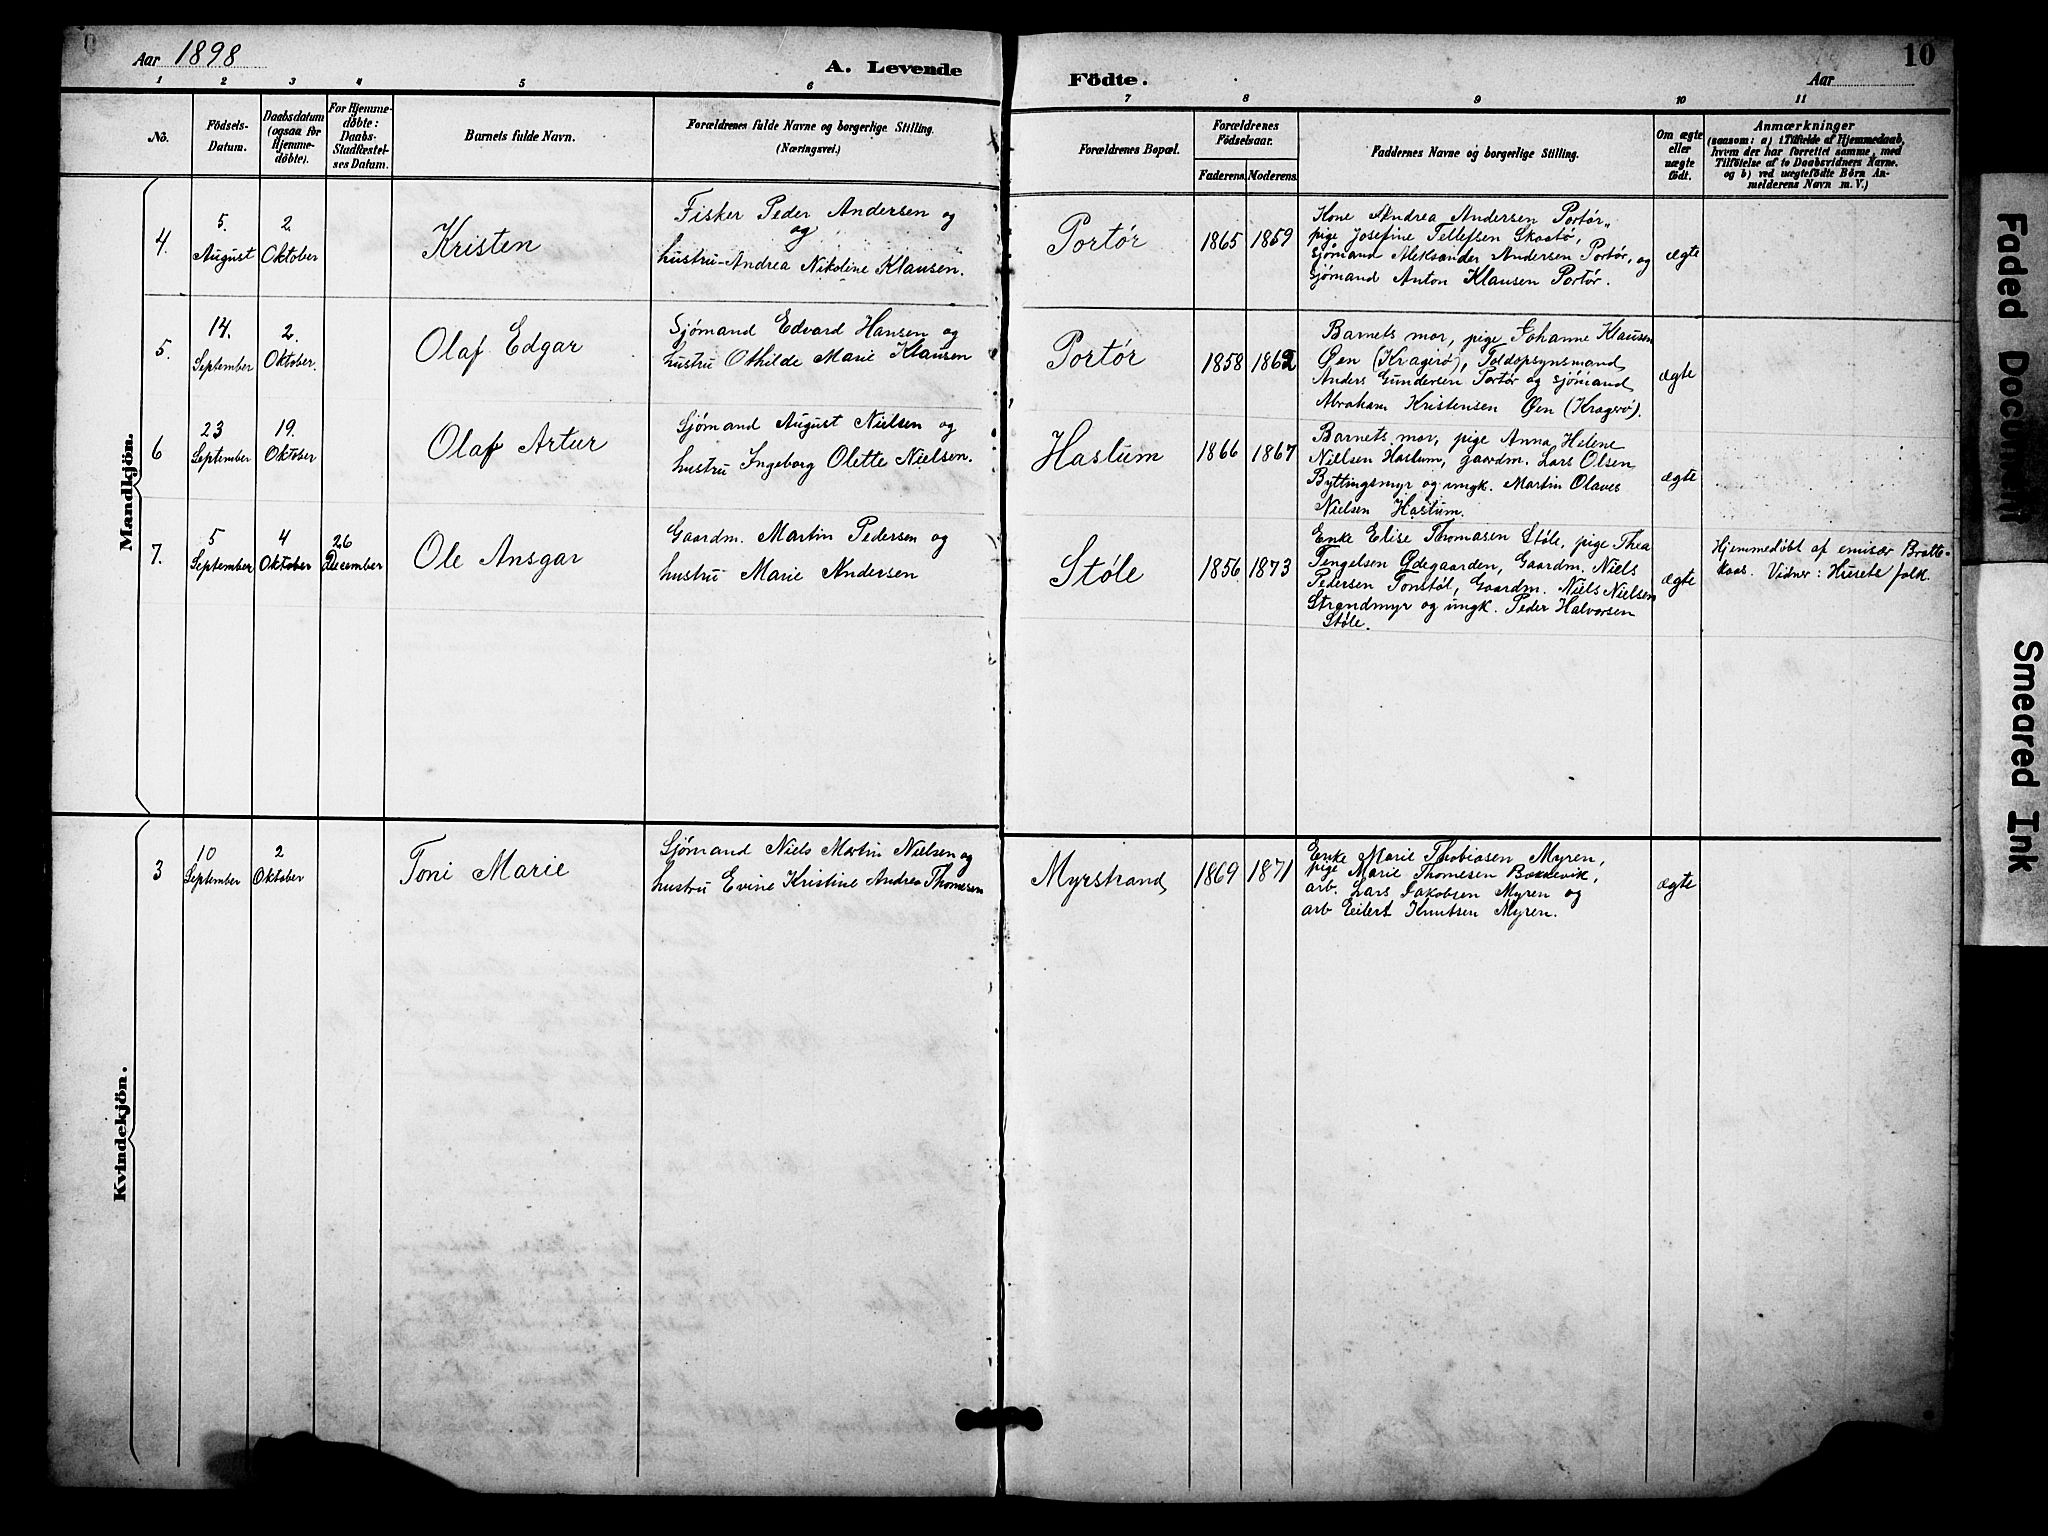 Aar 1898
A. Levende
Födte.
Aar
10
1 2 3 4 5 6 7 8 9 10 11
No.
Födsels-
Datum.
Daabsdatum
(ogsaa for
Hjemme-
döbte).
For Hjemme-
döbte:
Daabs-
Stadfæstel-
ses Datum.
Barnets fulde Navn.
Forældrenes fulde Navne og borgerlige Stilling.
(Næringsvei.)
Forældrenes Bopæl.
Forældrenes
Födselsaar.
Faderens. Moderens.
Faddernes Navne og borgerlige Stilling.
Om ægte
eller
uægte
födt.
Anmærkninger
(saasom: a) i Tilfælde af Hjemmedaab,
hvem der har forrettet samme, med
Tilföielse af to Daabsvidners Navne.
og b) ved uægtefödte Börn An-
melderens Navn m. V.)
Mandkjön.
4.
5.
August
2.
Oktober
Kristen
Fisker Peder Andersen og
og
hustru Andrea Nikoline Klausen.
Portør
1865 1859
Kone Andrea Andersen Portør,
pige Josefine Tellefsen Skaatø,
sjømand Aleksander Andersen Portør, og
sjømand Anton Klausen Portør.
ægte
5.
14.
September
2.
Oktober.
Olaf Edgar
Sjømand Edvard Hansen og
hustru Othilde Marie Klausen
Portør
1858 1862
Barnets mor, pige Johanne Klausen
Øen (Kragerø), Toldopsynsmand
Anders Gundersen Portør og sjømand
Abraham Kristensen Øen (Kragerø).
ægte
6
23
September
19.
Oktober
Olaf Artur
Sjømand August Nielsen og
hustru Ingeborg Olette Nielsen.
Haslum
1866 1867
Barnets mor, pige Anna Helene
Nielsen Haslum, gaardm. Lars Olsen
Byttingsmyr og ungk. Martin Olaves
Nielsen Haslum.
ægte
7.
5
September
4
Oktober
26
December
Ole Ansgar
Gaardm. Martin Pedersen og
hustru Marie Andersen
Støle
1856 1873
Enke Elise Thomasen Støle, pige Thea
Tengelsen Ødegaarden, Gaardm. Niels
Pedersen Tonstøl, Gaardm. Niels Nielsen
Strandmyr og ungk. Peder Halvorsen
Støle.
ægte
Hjemmedøbt af emisær Bratte-
kaas. Vidner: Husets folk.
Kvindekjön.
3
10
September
2
Oktober
Toni Marie
Sjømand Niels Martin Nielsen og
hustru Evine Kristine Andrea Thomesen
Myrstrand
1869 1871
Enke Marie Thobiasen Myren,
pige Marie Thomesen
arb. Lars Jakobsen Myren og
arb Eilert Knutsen Myren.
ægte
Faded Document
Smeared Ink